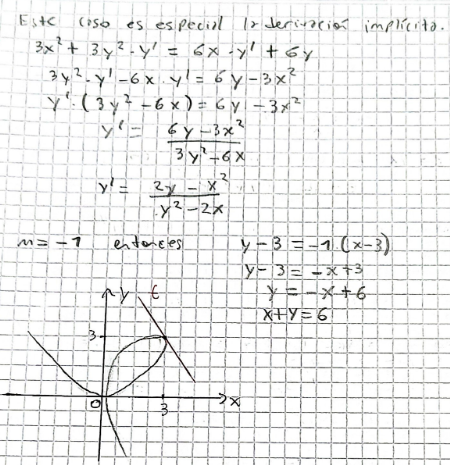 Este caso es especial la derivación implícita.
3x² + 3y² · y' = 6x · y' + 6y
3y² · y' - 6x · y' = 6y - 3x²
y' · (3y² - 6x) = 6y - 3x²
y' = \frac{6y - 3x²}{3y² - 6x}
y' = \frac{2y - x²}{y² - 2x}
m = -1 entonces y - 3 = -1 · (x - 3)
y - 3 = -x + 3
y = -x + 6
x + y = 6
y t
3
0 3 x